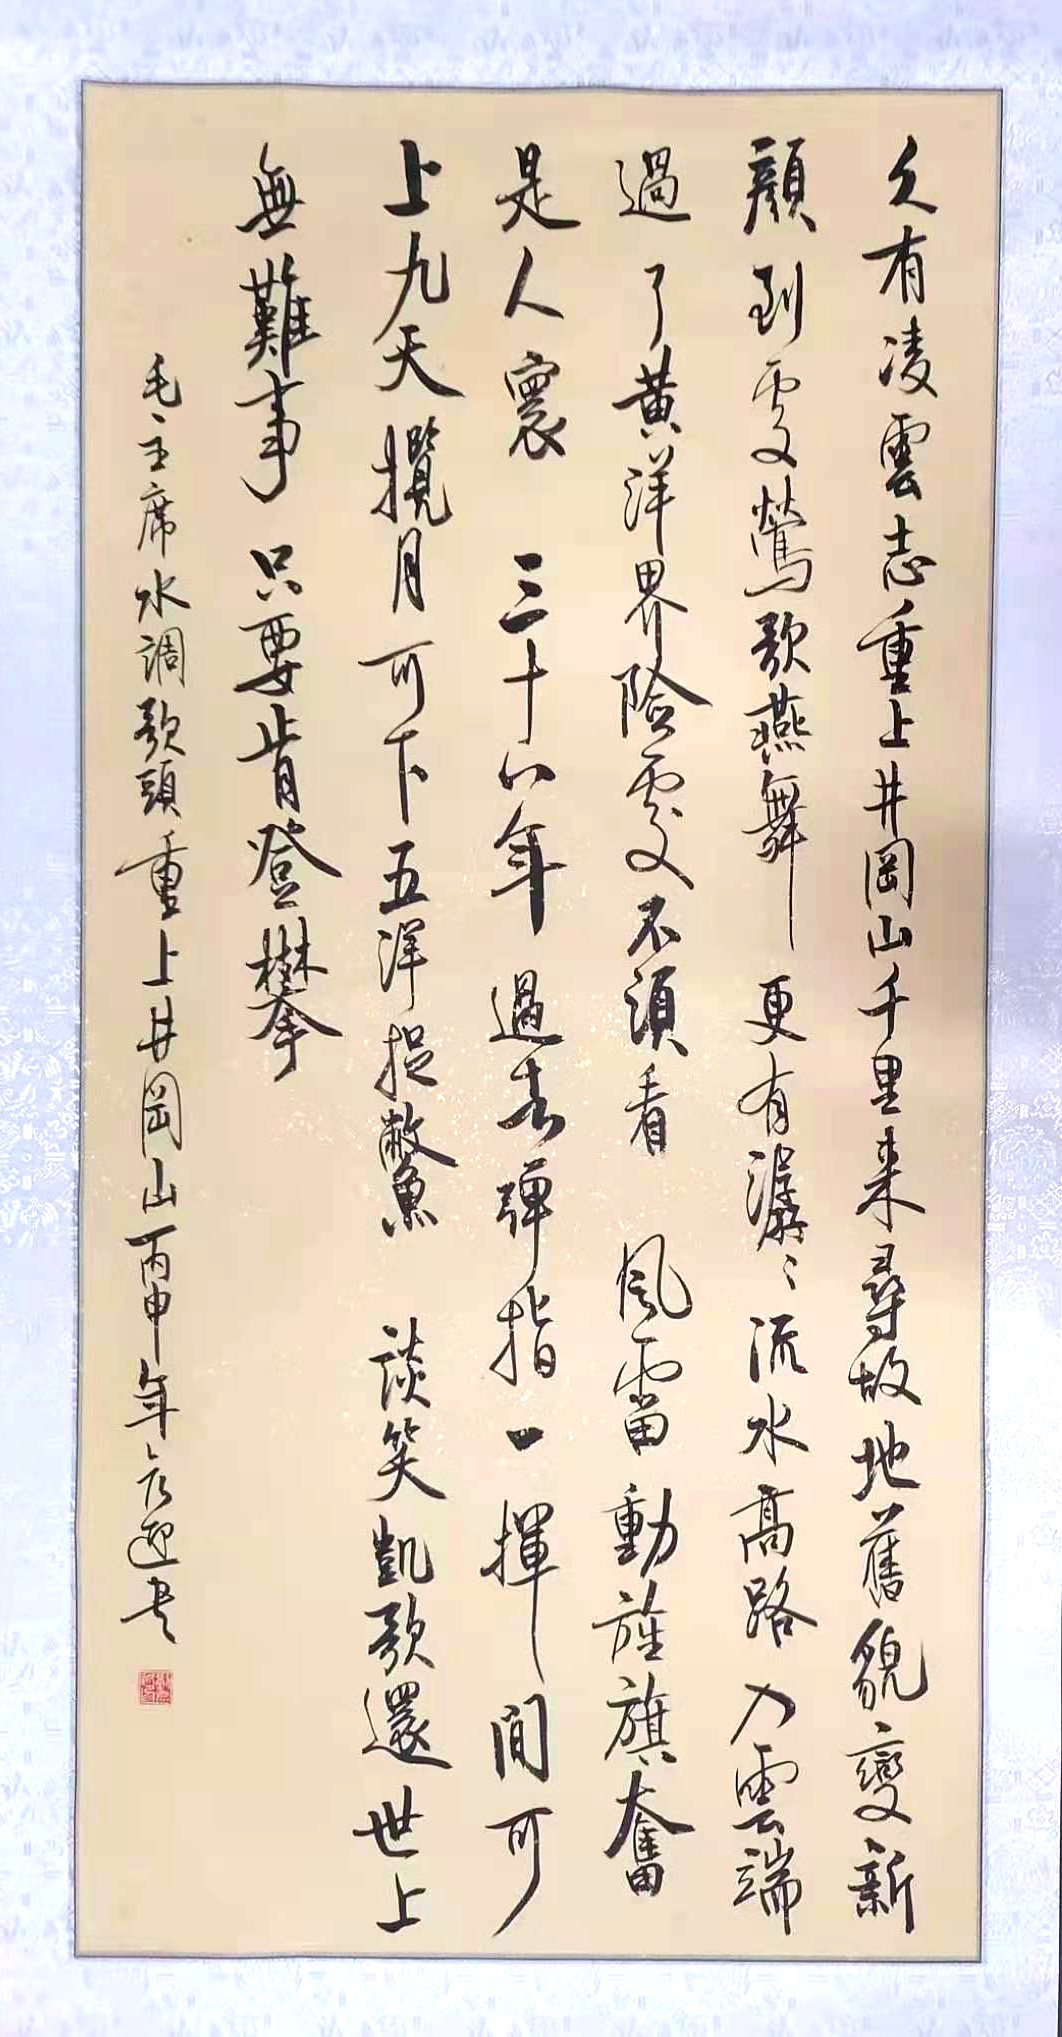 久有凌雲志重上井岡山千里来尋故地舊貌變新
顔到處鶯歌燕舞更有潺〻流水高路入雲端
過了黄洋界險處不須看風雷動旌旗奮
是人寰三十八年過去彈指一揮間可
上九天攬月可下五洋捉鱉談笑凱歌還世上
無難事只要肯登攀
毛主席水調歌頭重上井岡山丙申年迎书